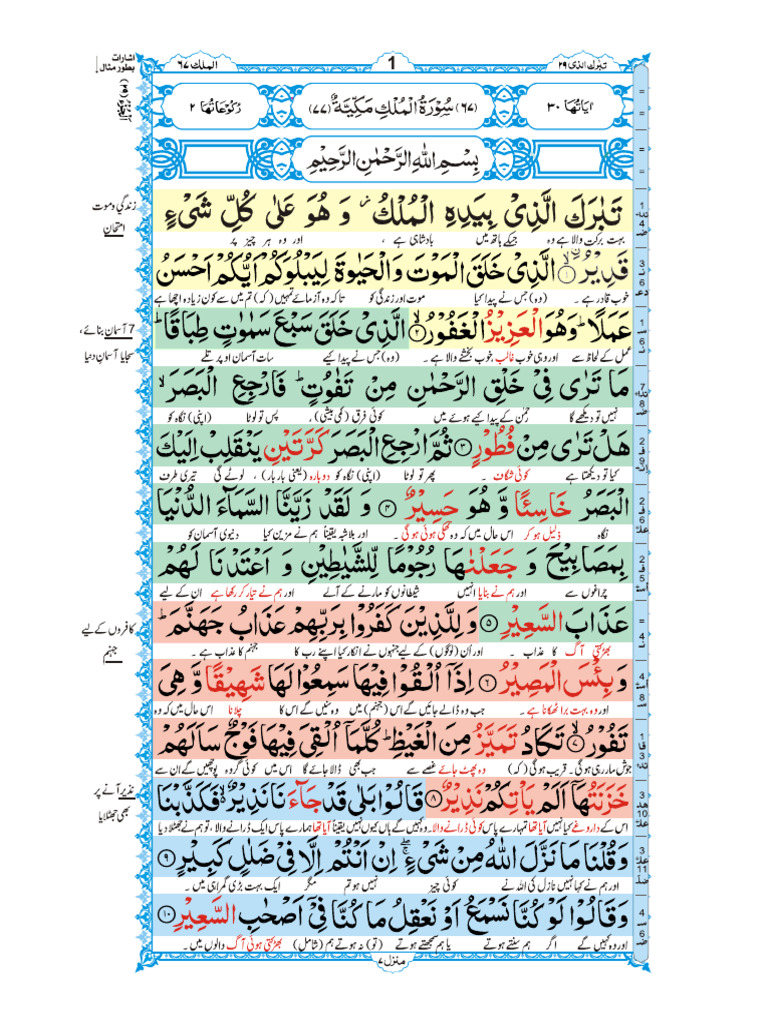 تبٰرك الذى ٢٩
1
الملك ٦٧
اشارات
بطور مثال
اٰیَاتُهَا ٣٠
(٦٧) سُوْرَةُ الْمُلْكِ مَكِّیَّةٌ (٧٧)
رُكُوْعَاتُهَا ٢
بِسْمِ اللهِ الرَّحْمٰنِ الرَّحِیْمِ
تَبٰرَكَ الَّذِیْ بِیَدِهِ الْمُلْكُ ز وَ هُوَ عَلٰی كُلِّ شَیْءٍ
بہت برکت والا ہے وہ جسکے ہاتھ میں بادشاہی ہے ، اور وہ ہر چیز پر
زندگی و موت
امتحان
قَدِیْرُ ۙ﴿۱﴾ الَّذِیْ خَلَقَ الْمَوْتَ وَالْحَیٰوةَ لِیَبْلُوَكُمْ اَیُّكُمْ اَحْسَنُ
خوب قادر ہے ۔ (وہ) جس نے پیدا کیا موت اور زندگی کو تاکہ وہ آزمائے تمہیں (کہ) تم میں سے کون زیادہ اچھا ہے
عَمَلًا ؕ وَهُوَ الْعَزِیْزُ الْغَفُوْرُ ۙ﴿۲﴾ الَّذِیْ خَلَقَ سَبْعَ سَمٰوٰتٍ طِبَاقًا ؕ
عمل کے لحاظ سے اور وہی خوب غالب خوب بخشنے والا ہے ۔ (وہ) جس نے پیدا کیے سات آسمان اوپر تلے
7 آسمان بنائے ،
سجایا آسمانِ دنیا
مَا تَرٰی فِیْ خَلْقِ الرَّحْمٰنِ مِنْ تَفٰوُتٍ ؕ فَارْجِعِ الْبَصَرَ ۙ
نہیں تو دیکھے گا رحمٰن کے پیدا کیے ہوئے میں کوئی فرق (کمی بیشی) ، پس تو لوٹا (اپنی) نگاہ کو
هَلْ تَرٰی مِنْ فُطُوْرٍ ﴿۳﴾ ثُمَّ ارْجِعِ الْبَصَرَ كَرَّتَیْنِ یَنْقَلِبْ اِلَیْكَ
کیا تو دیکھتا ہے کوئی شگاف ۔ پھر تو لوٹا (اپنی) نگاہ کو دوبارہ (یعنی بار بار) ، لوٹے گی تیری طرف
الْبَصَرُ خَاسِئًا وَّ هُوَ حَسِیْرٌ ﴿۴﴾ وَ لَقَدْ زَیَّنَّا السَّمَآءَ الدُّنْیَا
نگاہ ذلیل ہو کر اس حال میں کہ وہ تھکی ہوئی ہوگی ۔ اور بلاشبہ یقیناً ہم نے مزین کیا دنیوی آسمان کو
بِمَصَابِیْحَ وَ جَعَلْنٰهَا رُجُوْمًا لِّلشَّیٰطِیْنِ وَ اَعْتَدْنَا لَهُمْ
چراغوں سے اور ہم نے بنایا انہیں شیطانوں کو مارنے کے آلے اور ہم نے تیار کر رکھا ہے ان کے لیے
عَذَابَ السَّعِیْرِ ﴿۵﴾ وَ لِلَّذِیْنَ كَفَرُوْا بِرَبِّهِمْ عَذَابُ جَهَنَّمَ ؕ
بھڑکتی آگ کا عذاب ۔ اور اُن (لوگوں) کے لیے جنہوں نے انکار کیا اپنے رب کا جہنم کا عذاب ہے ۔
کافروں کے لیے
جہنم
وَ بِئْسَ الْمَصِیْرُ ﴿۶﴾ اِذَاۤ اُلْقُوْا فِیْهَا سَمِعُوْا لَهَا شَهِیْقًا وَّ هِیَ
اور وہ بہت برا ٹھکانا ہے ۔ جب وہ ڈالے جائیں گے اس (جہنم) میں وہ سنیں گے اس کا چلانا اس حال میں کہ وہ
تَفُوْرُ ۙ﴿۷﴾ تَكَادُ تَمَیَّزُ مِنَ الْغَیْظِ ؕ كُلَّمَاۤ اُلْقِیَ فِیْهَا فَوْجٌ سَاَلَهُمْ
جوش مار رہی ہوگی ۔ قریب ہوگی (کہ) وہ پھٹ جائے غصے سے جب بھی ڈالا جائے گا اس میں کوئی گروہ پوچھیں گے ان سے
خَزَنَتُهَاۤ اَلَمْ یَاْتِكُمْ نَذِیْرٌ ﴿۸﴾ قَالُوْا بَلٰی قَدْ جَآءَنَا نَذِیْرٌ ۙ۬ فَكَذَّبْنَا
اس کے داروغے کیا نہیں آیا تھا تمہارے پاس کوئی ڈرانے والا ۔ وہ کہیں گے ہاں کیوں نہیں یقیناً آیا تھا ہمارے پاس ایک ڈرانے والا ، تو ہم نے جھٹلا دیا
نذیر آنے پر
بھی جھٹلایا
وَقُلْنَا مَا نَزَّلَ اللهُ مِنْ شَیْءٍ ۚۖ اِنْ اَنْتُمْ اِلَّا فِیْ ضَلٰلٍ كَبِیْرٍ ﴿۹﴾
اور ہم نے کہا نہیں نازل کی اللہ نے کوئی چیز نہیں ہو تم مگر ایک بہت بڑی گمراہی میں ۔
وَقَالُوْا لَوْ كُنَّا نَسْمَعُ اَوْ نَعْقِلُ مَا كُنَّا فِیْۤ اَصْحٰبِ السَّعِیْرِ ﴿۱۰﴾
اور وہ کہیں گے اگر ہم سنتے ہوتے یا ہم سمجھتے ہوتے (تو) نہ ہوتے ہم (شامل) بھڑکتی ہوئی آگ والوں میں ۔
منزل ٧